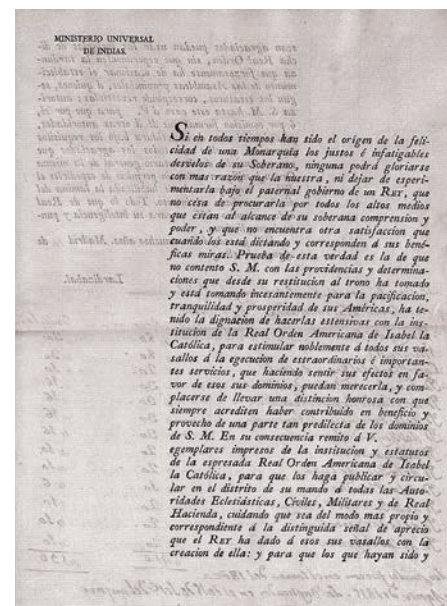 MINISTERIO UNIVERSAL
DE INDIAS.
Si en todos tiempos han sido el orígen de la feli-
cidad de una Monarquía los justos é infatigables
desvelos de su Soberano, ninguna podrá gloriarse
con mas razon que la nuestra, ni dejar de esperi-
mentarla bajo el paternal gobierno de un REY, que
no cesa de procurarla por todos los altos medios
que estan al alcance de su soberana comprension y
poder, y que no encuentra otra satisfaccion que
cuando los está dictando y corresponden á sus bené-
ficas miras. Prueba de esta verdad es la de que
no contento S. M. con las providencias y determina-
ciones que desde su restitucion al trono ha tomado
y está tomando incesantemente para la pacificacion,
tranquilidad y prosperidad de sus Américas, ha te-
nido la dignacion de hacerlas estensivas con la ins-
titucion de la Real Orden Americana de Isabel la
Católica, para estimular noblemente á todos sus va-
sallos á la egecucion de estraordinarios é importan-
tes servicios, que haciendo sentir sus efectos en fa-
vor de esos sus dominios, puedan merecerla, y com-
placerse de llevar una distincion honrosa con que
siempre acrediten haber contribuido en beneficio y
provecho de una parte tan predilecta de los dominios
de S. M. En su consecuencia remito á V.
egemplares impresos de la institucion y estatutos
de la espresada Real Orden Americana de Isabel
la Católica, para que los haga publicar y circu-
lar en el distrito de su mando á todas las Auto-
ridades Eclesiasticas, Civiles, Militares y de Real
Hacienda, cuidando que sea del modo mas propio y
correspondiente á la distinguida señal de aprecio
que el REY ha dado á esos sus vasallos con la
creacion de ella: y para que los que hayan sido y